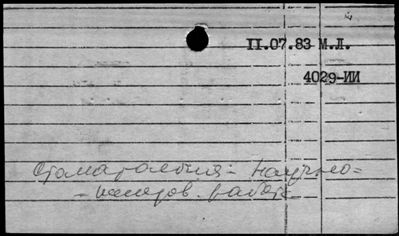 II.07.83 М.Л.
4029-ИИ
Стоматология - научно-
- исслед. работа